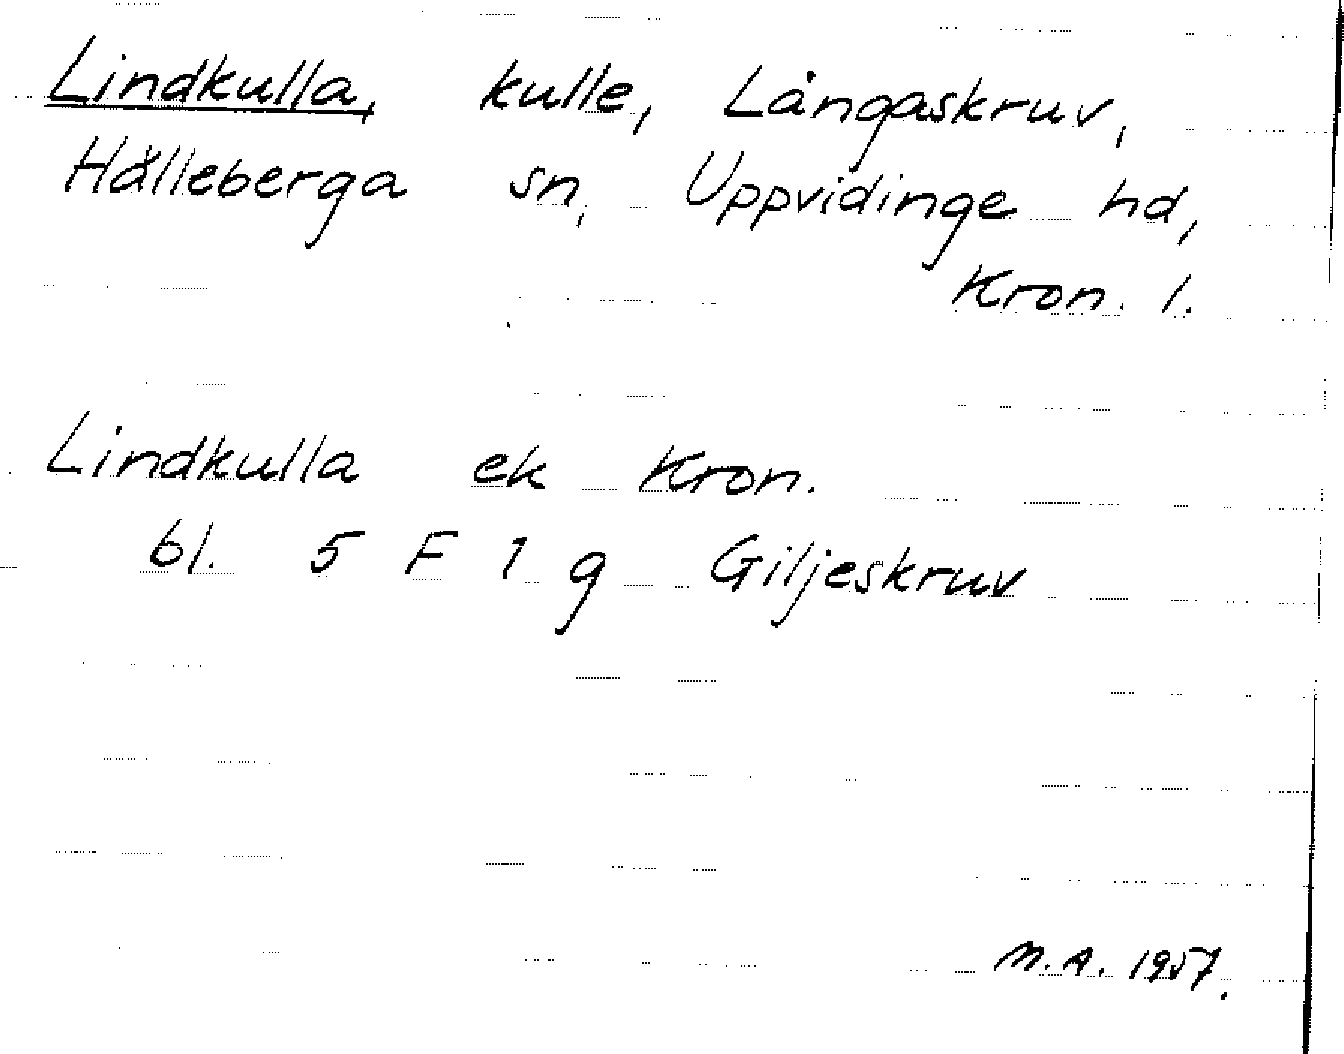 Lindkulla, kulle, Långaskruv,
Hälleberga sn, Uppvidinge hd,
Kron. l.
Lindkulla ek Kron.
bl. 5 F 1 g Giljeskruv
M.A. 1957.